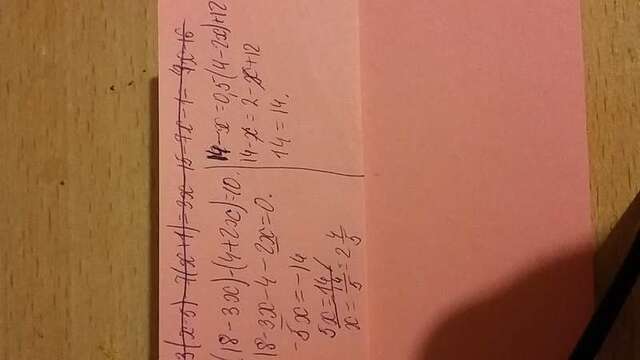 3(x-5)-7(x+1)=3x-15-7x-7=-4x-
(18-3x)-(4+2x)=10.
18-3x-4-2x=0.
-5x=-14
5x=14/
x=14/5=2 4/5
14-x=0,5(4-2x)+12
14-x=2-x+12
14=14.